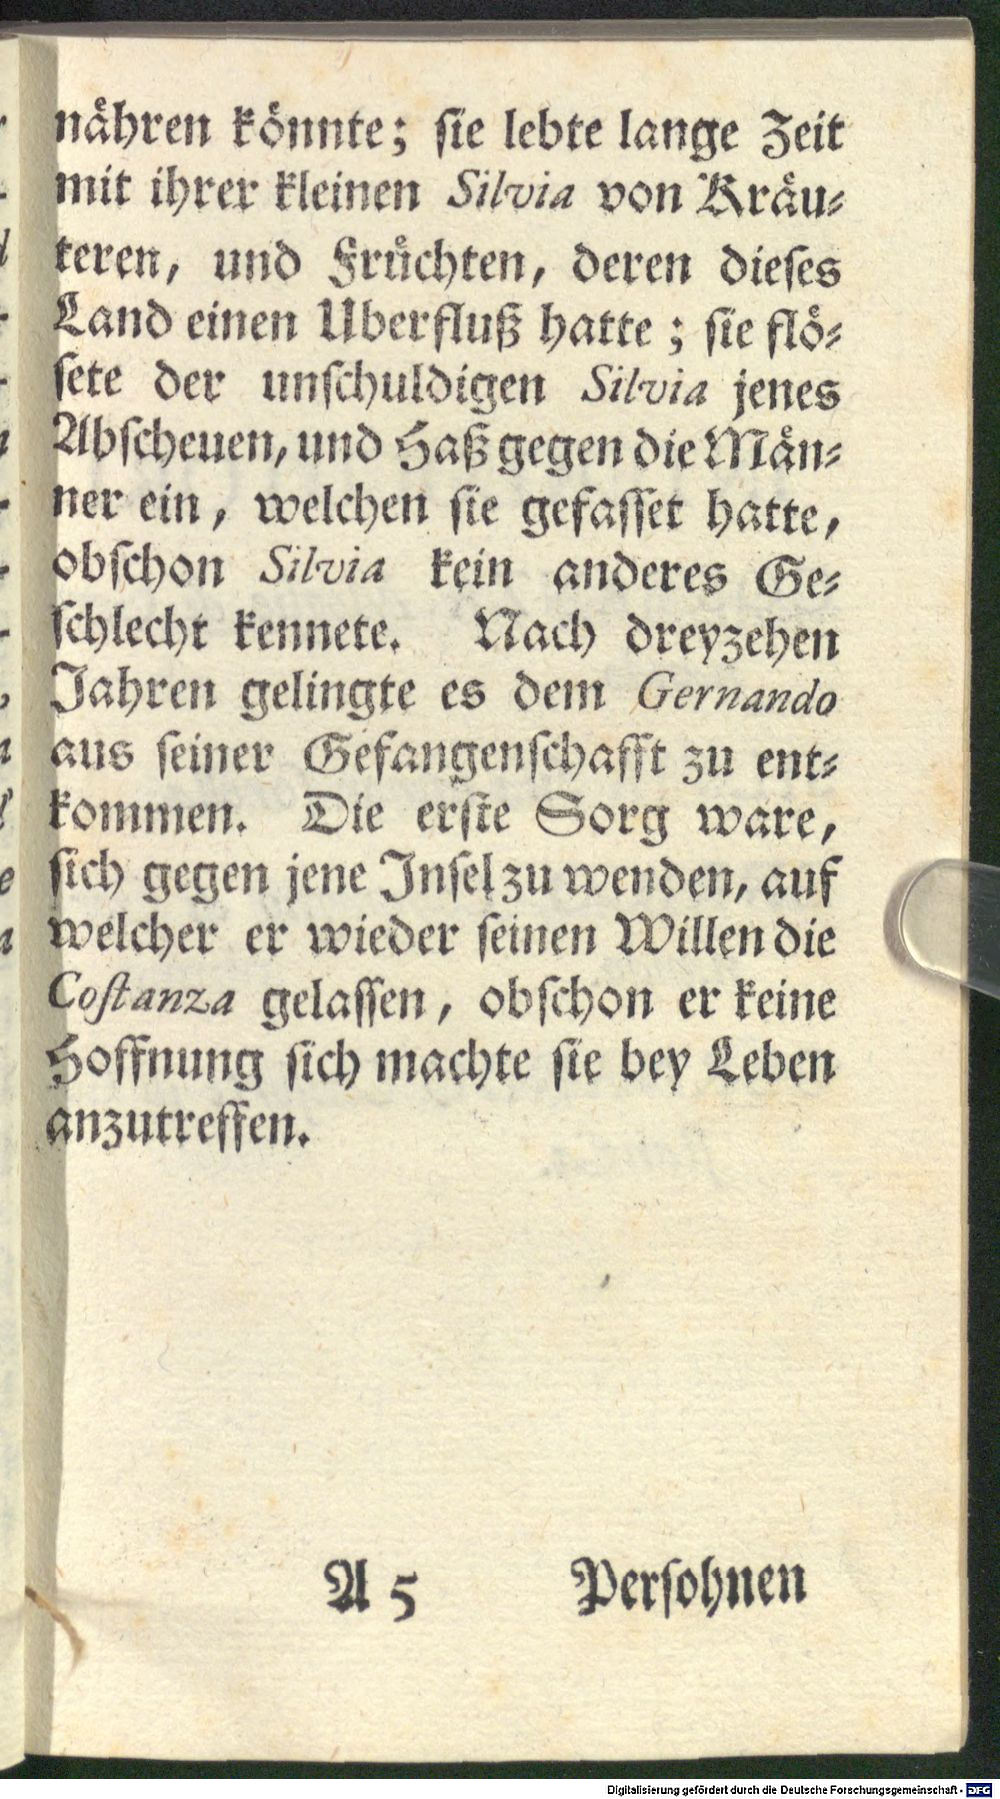 nähren könnte; sie lebte lange Zeit
mit ihrer kleinen Silvia von Kräu-
teren, und Früchten, deren dieses
Land einen Uberfluß hatte; sie flö-
sete der unschuldigen Silvia jenes
Abscheuen, und Haß gegen die Män-
ner ein, welchen sie gefasset hatte,
obschon Silvia kein anderes Ge-
schlecht kennete. Nach dreyzehen
Jahren gelingte es dem Gernando
aus seiner Gefangenschafft zu ent-
kommen. Die erste Sorg ware,
sich gegen jene Insel zu wenden, auf
welcher er wieder seinen Willen die
Costanza gelassen, obschon er keine
Hoffnung sich machte sie bey Leben
anzutreffen.
A 5 Persohnen
Digitalisierung gefördert durch die Deutsche Forschungsgemeinschaft - DFG